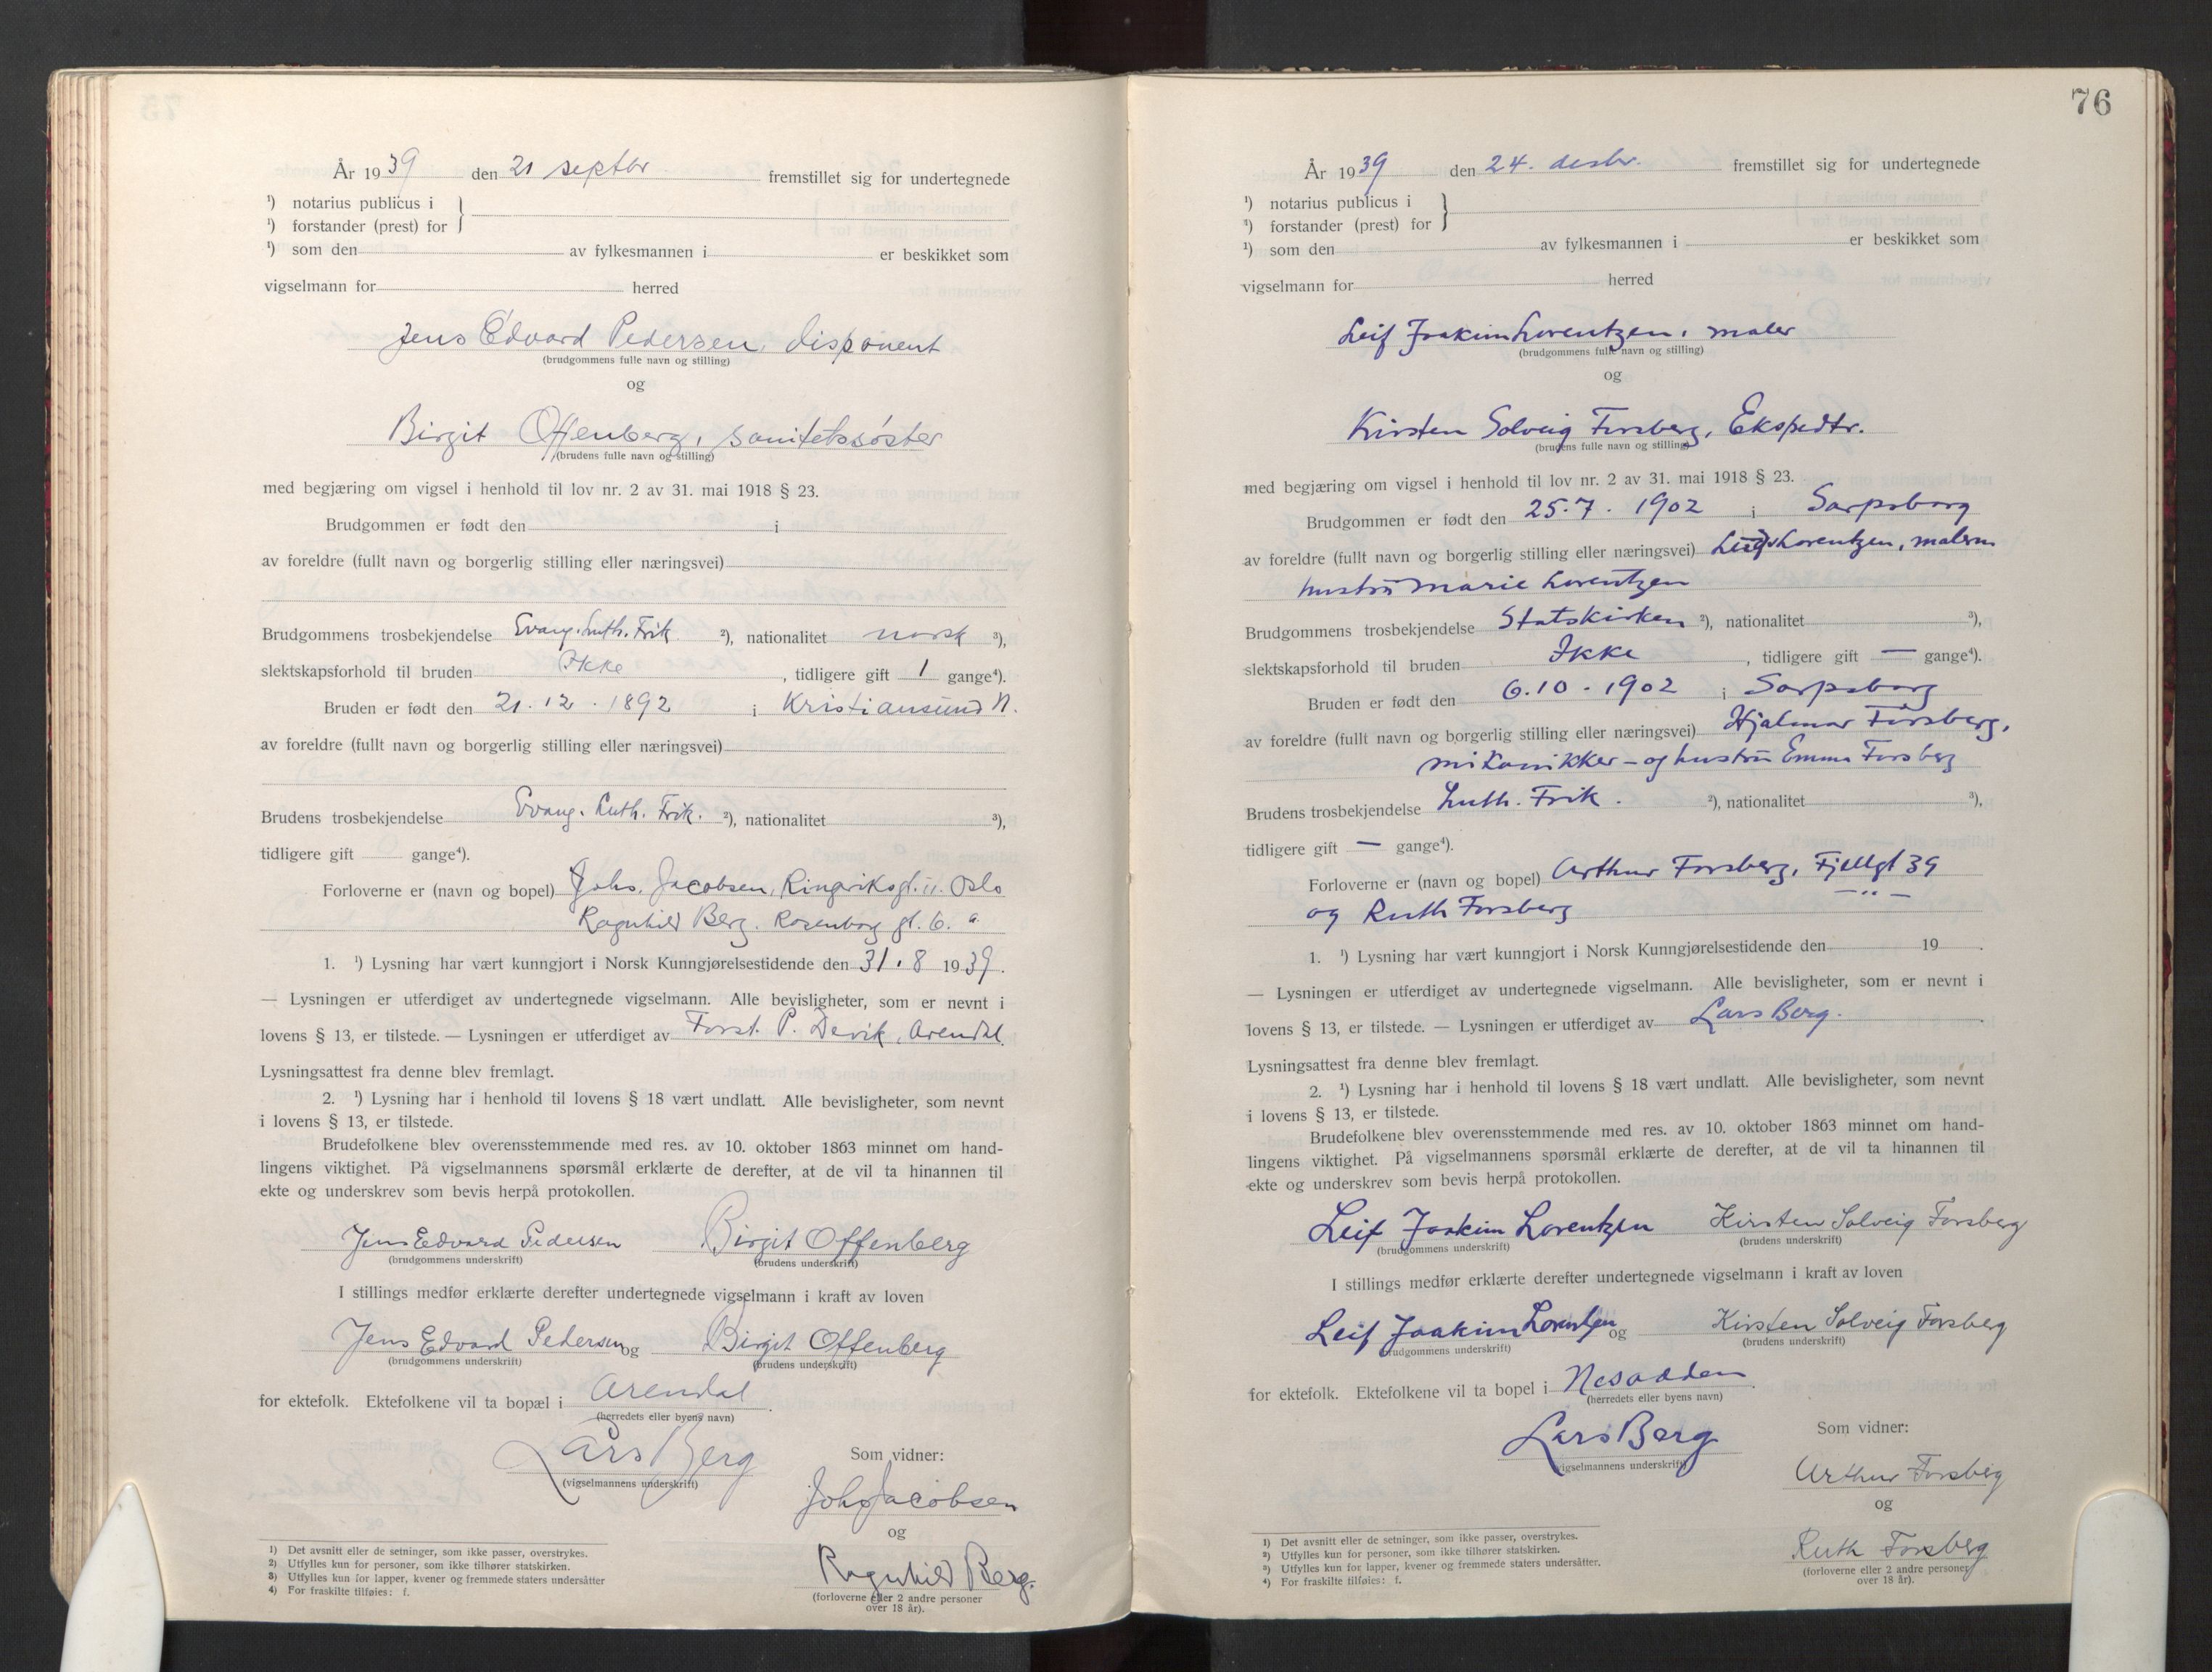 År 1939 den 21 septbr fremstillet sig for undertegnede
¹) notarius publicus i
¹) forstander (prest) for
¹) som den av fylkesmannen i er beskikket som
vigselmann for herred
Jens Edvard Pedersen, disponent
(brudgommens fulle navn og stilling)
og
Birgit Offenberg, sanitetssøster
(brudens fulle navn og stilling)
med begjæring om vigsel i henhold til lov nr. 2 av 31. mai 1918 § 23.
Brudgommen er født den i
av foreldre (fullt navn og borgerlig stilling eller næringsvei)
Brudgommens trosbekjendelse Evang. Luth. Frik ²), nationalitet norsk ³),
slektskapsforhold til bruden Ikke, tidligere gift 1 gange⁴).
Bruden er født den 21.12.1892 i Kristiansund N.
av foreldre (fullt navn og borgerlig stilling eller næringsvei)
Brudens trosbekjendelse Evang. Luth. Frik. ²), nationalitet ³),
tidligere gift gange⁴).
Forloverne er (navn og bopel) Johs. Jacobsen, Ringriksgt. 11. Oslo
Ragnhild Berg. Rosenborg gt. 6. a.
1. ¹) Lysning har vært kunngjort i Norsk Kunngjørelsestidende den 31.8 1939.
— Lysningen er utferdiget av undertegnede vigselmann. Alle bevisligheter, som er nevnt i
lovens § 13, er tilstede. — Lysningen er utferdiget av Forst. P. Devik, Arendal.
Lysningsattest fra denne blev fremlagt.
2. ¹) Lysning har i henhold til lovens § 18 vært undlatt. Alle bevisligheter, som nevnt
i lovens § 13, er tilstede.
Brudefolkene blev overensstemmende med res. av 10. oktober 1863 minnet om hand-
lingens viktighet. På vigselmannens spørsmål erklærte de derefter, at de vil ta hinannen til
ekte og underskrev som bevis herpå protokollen.
Jens Edvard Pedersen Birgit Offenberg
(brudgommens underskrift) (brudens underskrift)
I stillings medfør erklærte derefter undertegnede vigselmann i kraft av loven
Jens Edvard Pedersen og Birgit Offenberg
(brudgommens underskrift) (brudens underskrift)
for ektefolk. Ektefolkene vil ta bopæl i Arendal.
(herredets eller byens navn)
Lars Berg
(vigselmannens underskrift)
Som vidner:
Johs Jacobsen
og
Ragnhild Berg.
(forloverne eller 2 andre personer
over 18 år).
1) Det avsnitt eller de setninger, som ikke passer, overstrykes.
2) Utfylles kun for personer, som ikke tilhører statskirken.
3) Utfylles kun for lapper, kvener og fremmede staters undersåtter
4) For fraskilte tilføies: f.
76
År 1939 den 24. desbr. fremstillet sig for undertegnede
¹) notarius publicus i
¹) forstander (prest) for
¹) som den av fylkesmannen i er beskikket som
vigselmann for herred
Leif Joakim Lorentzen, maler
(brudgommens fulle navn og stilling)
og
Kirsten Solveig Forsberg, Ekspedtr.
(brudens fulle navn og stilling)
med begjæring om vigsel i henhold til lov nr. 2 av 31. mai 1918 § 23.
Brudgommen er født den 25.7.1902 i Sarpsborg
av foreldre (fullt navn og borgerlig stilling eller næringsvei) Lorentzen, maler
hustru Marie Lorentzen
Brudgommens trosbekjendelse Statskirken ²), nationalitet ³),
slektskapsforhold til bruden Ikke, tidligere gift — gange⁴).
Bruden er født den 6.10.1902 i Sarpsborg
av foreldre (fullt navn og borgerlig stilling eller næringsvei) Hjalmar Forsberg,
mikanikker - og hustru Emma Forsberg
Brudens trosbekjendelse Luth. Frik. ²), nationalitet ³),
tidligere gift — gange⁴).
Forloverne er (navn og bopel) Arthur Forsberg, Fjellgt 39
og Ruth Forsberg —"—
1. ¹) Lysning har vært kunngjort i Norsk Kunngjørelsestidende den 19 .
— Lysningen er utferdiget av undertegnede vigselmann. Alle bevisligheter, som er nevnt i
lovens § 13, er tilstede. — Lysningen er utferdiget av Lars Berg.
Lysningsattest fra denne blev fremlagt.
2. ¹) Lysning har i henhold til lovens § 18 vært undlatt. Alle bevisligheter, som nevnt
i lovens § 13, er tilstede.
Brudefolkene blev overensstemmende med res. av 10. oktober 1863 minnet om hand-
lingens viktighet. På vigselmannens spørsmål erklærte de derefter, at de vil ta hinannen til
ekte og underskrev som bevis herpå protokollen.
Leif Joakim Lorentzen Kirsten Solveig Forsberg
(brudgommens underskrift) (brudens underskrift)
I stillings medfør erklærte derefter undertegnede vigselmann i kraft av loven
Leif Joakim Lorentzen og Kirsten Solveig Forsberg
(brudgommens underskrift) (brudens underskrift)
for ektefolk. Ektefolkene vil ta bopel i Nesodden.
(herredets eller byens navn)
Lars Berg
(vigselmannens underskrift)
Som vidner:
Arthur Forsberg
og
Ruth Forsberg
(forloverne eller 2 andre personer
over 18 år).
1) Det avsnitt eller de setninger, som ikke passer, overstrykes.
2) Utfylles kun for personer, som ikke tilhører statskirken.
3) Utfylles kun for lapper, kvener og fremmede staters undersåtter.
4) For fraskilte tilføies: f.